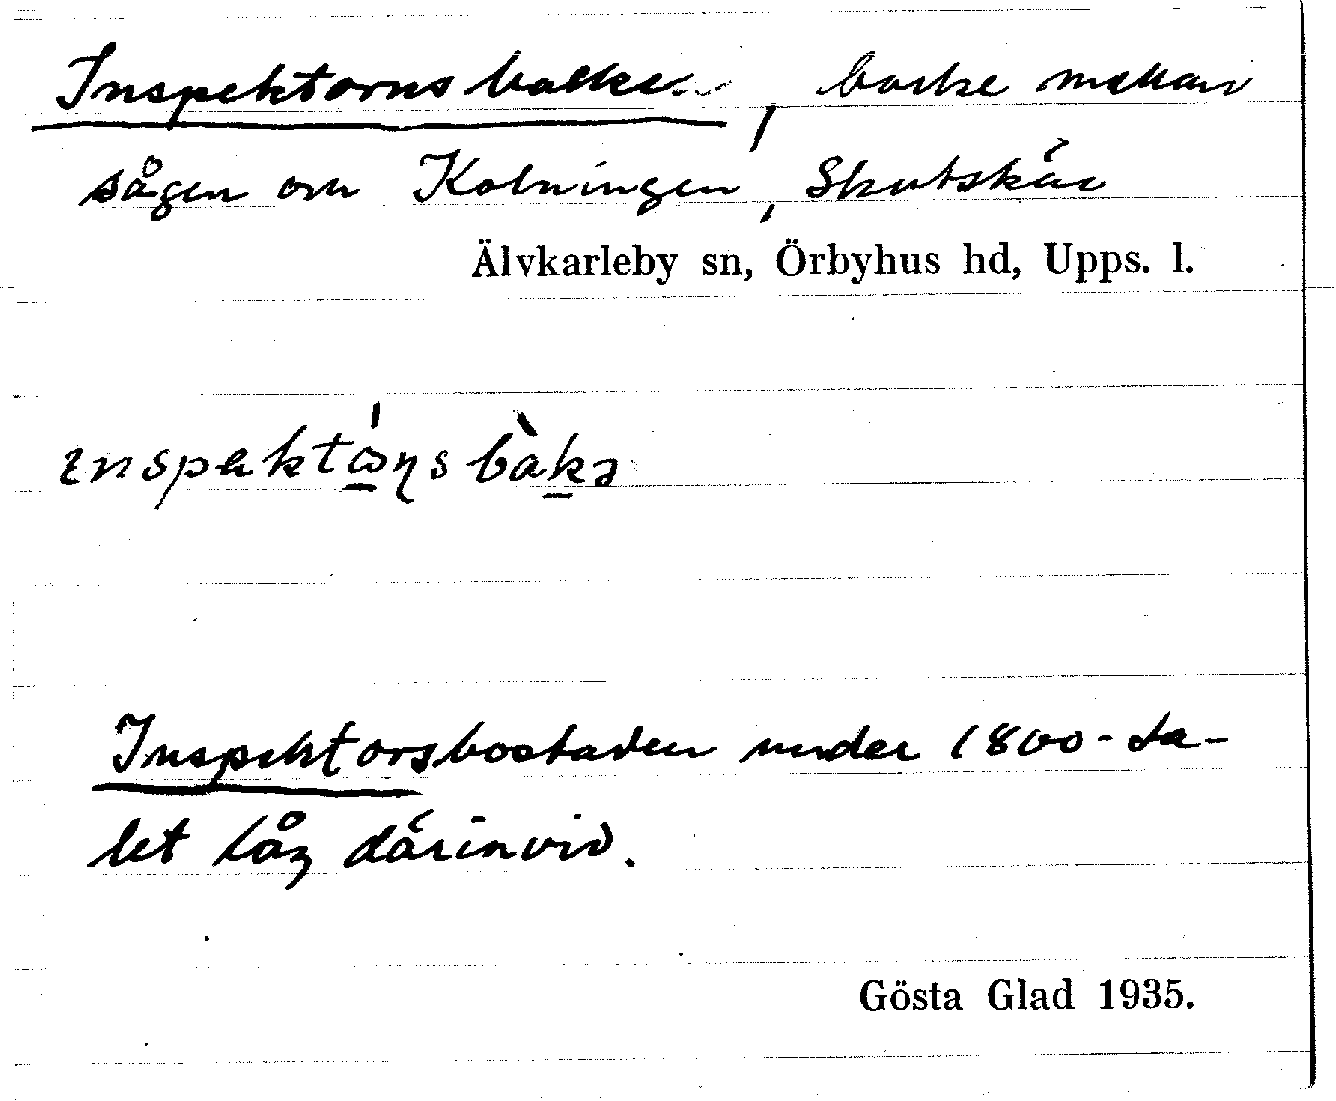 Inspektorns backe, backe mellan
sågen och Kolningen, Skutskär
Älvkarleby sn, Örbyhus hd, Upps. l.
Inspektorsbostaden under 1800-ta-
let låg därinvid.
Gösta Glad 1935.